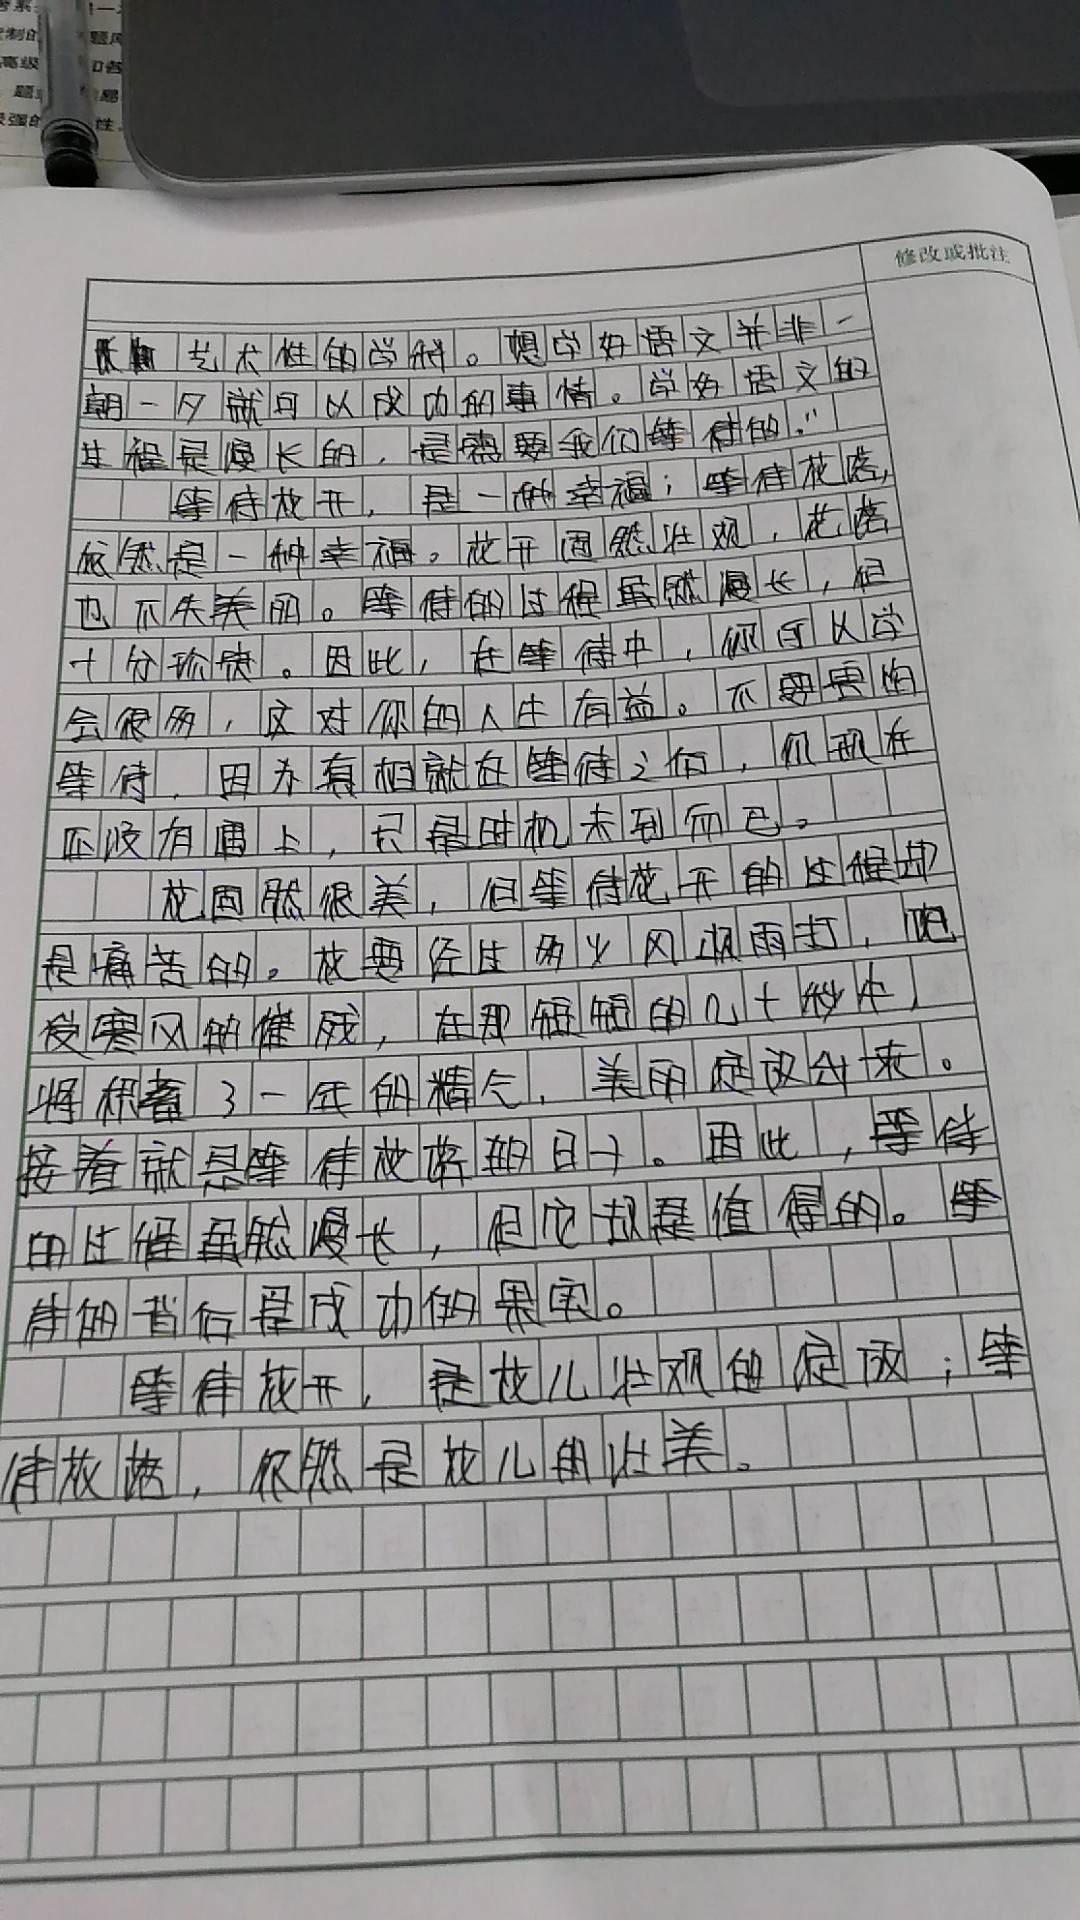 修改或批注
艺术性的学科。想学好语文并非一
朝一夕就可以成功的事情。学好语文的
过程是漫长的，是需要我们等待的."
等待花开，是一种幸福；等待花落，
依然是一种幸福。花开固然壮观，花落
也不失美丽。等待的过程虽然漫长，但
十分珍贵。因此，在等待中，你可以学
会很多，这对你的人生有益。不要害怕
等待，因为真相就在等待之后，们现在
还没有遇上，只是时机未到而已。
花固然很美，但等待花开的过程却
是痛苦的。花要经过多少风吹雨打，饱
受寒风的催残，在那短短的几十秒中，
将积蓄了一年的精气，美丽绽放出来。
接着就是等待花落的日子。因此，等待
的过程虽然漫长，但它却是值得的。等
待的背后是成功的果实。
等待花开，是花儿壮观的绽放；等
待花落，依然是花儿的壮美。